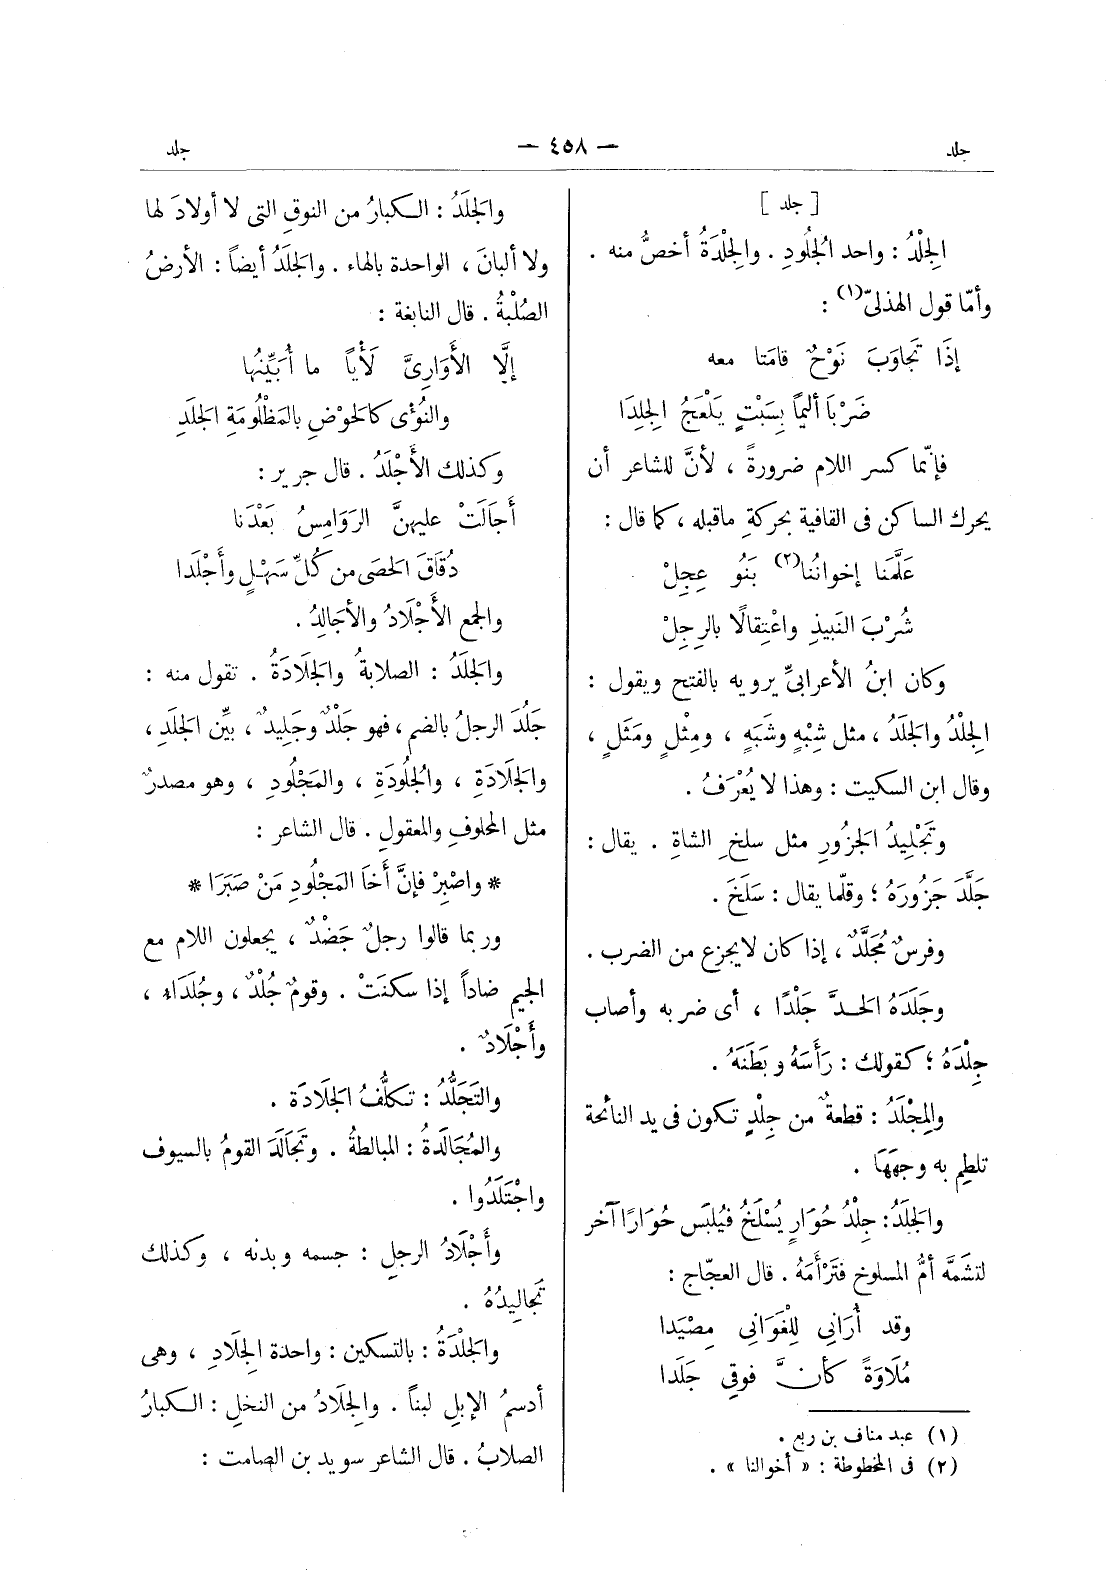 جلد
— ٤٥٨ —
جلد
[ جلد ]
الجِلْدُ : واحد الجُلُودِ . والجِلْدَةُ أخصُّ منه .
وأمّا قول الهذلىّ(١) :
إذَا تَجَاوَبَ نَوْحٌ قامَتا معه
ضَرْبَا أليماً بِسَبْتٍ يَلْعَجُ الجِلِدَا
فإنّما كسر اللام ضرورةً ، لأنَّ للشاعر أن
يحرك الساكن فى القافية بحركةِ ماقبله ، كما قال :
عَلَّمَنا إخوانُنا(٢) بَنُو عِجِلْ
شُرْبَ النَبيذِ واعْتِقالًا بالرِجِلْ
وكان ابنُ الأعرابىِّ يرويه بالفتح ويقول :
الجِلْدُ والجَلَدُ ، مثل شِبْهٍ وشَبَهٍ ، ومِثْلٍ ومَثَلٍ ،
وقال ابن السكيت : وهذا لا يُعْرَفُ .
وتَجْلِيدُ الجَزُورِ مثل سلخِ الشاةِ . يقال :
جَلَّدَ جَزُورَهُ ؛ وقلّما يقال : سَلَخَ .
وفرسٌ مُجَلَّدٌ ، إذا كان لايجزع من الضرب .
وجَلَدَهُ الحدَّ جَلْدًا ، أى ضربه وأصاب
جِلْدَهُ ؛ كقولك : رَأَسَهُ وبَطَنَهُ .
والمِجْلَدُ : قطعةٌ من جِلْدٍ تكون فى يد النائحة
تلطِم به وجهَهَا .
والجَلَدُ : جِلْدُ حُوَارٍ يُسْلَخُ فيُلبَس حُوَارًا آخر
لتشَمَّه أمُّ المسلوخ فتَرْأَمَهُ . قال العجّاج :
وقد أُرَانِي لِلْغَوَانِي مِصْيَدا
مُلَاوَةً كأنَّ فوقِي جَلَدا
(١) عبد مناف بن ربع .
(٢) فى المخطوطة : « أخوالنا » .
والجَلَدُ : الكبارُ من النوقِ التى لا أولادَ لها
ولا ألبانَ ، الواحدة بالهاء . والجَلَدُ أيضاً : الأرضُ
الصُلْبَةُ . قال النابغة :
إلَّا الأَوَارِىَّ لَأْياً ما أُبَيِّنُها
والنُؤْى كالحَوْضِ بالمَظْلُومَةِ الجَلَدِ
وكذلك الأَجْلَدُ . قال جرير :
أَجَالَتْ عليهنَّ الرَوَامِسُ بَعْدَنا
دُقَاقَ الحَصَى من كُلِّ سَهْلٍ وأَجْلَدا
والجمع الأَجْلَادُ والأجَالِدُ .
والجَلَدُ : الصلابةُ والجَلَادَةُ . تقول منه :
جَلُدَ الرجلُ بالضم ، فهو جَلْدٌ وجَلِيدٌ ، بيِّن الجَلَدِ ،
والجَلَادَةِ ، والجُلُودَةِ ، والمَجْلُودِ ، وهو مصدرٌ
مثل المحلوفِ والمعقولِ . قال الشاعر :
* واصْبِرْ فإنَّ أَخَا المَجْلُودِ مَنْ صَبَرَا *
وربما قالوا رجلٌ جَضْدٌ ، يجعلون اللام مع
الجيم ضاداً إذا سكنَتْ . وقومٌ جُلْدٌ ، وجُلَدَاءُ ،
وأَجْلَادٌ .
والتَجَلُّدُ : تكلُّفُ الجَلَادَة .
والمُجَالَدَةُ : المبالطةُ . وتَجَالَدَ القومُ بالسيوف
واجْتَلَدُوا .
وأَجْلَادُ الرجلِ : جسمه وبدنه ، وكذلك
تَجَالِيدُهُ .
والجَلْدَةُ : بالتسكين : واحدة الجِلَادِ ، وهى
أدسمُ الإبلِ لبناً . والجِلَادُ من النخلِ : الكبارُ
الصلابُ . قال الشاعر سويد بن الصامت :